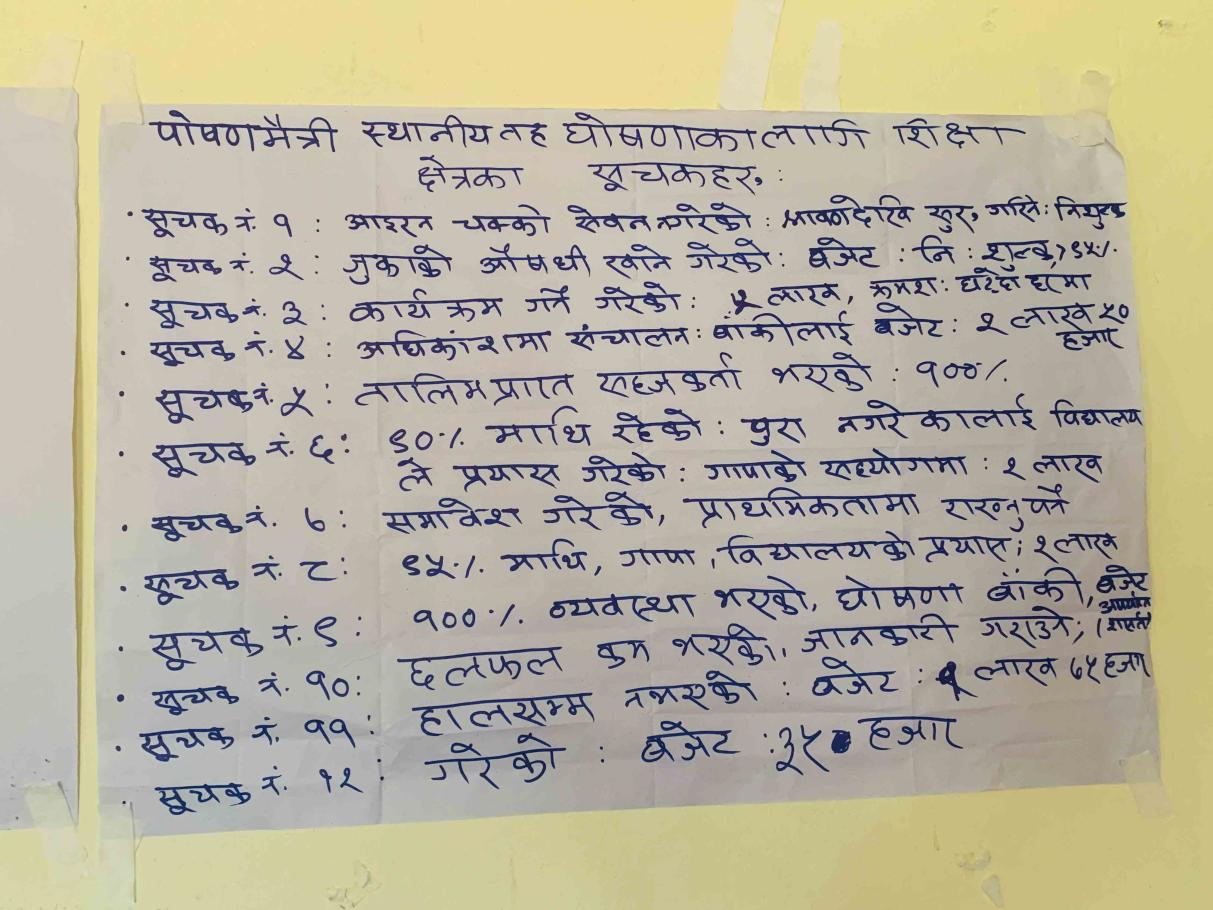 पोषणमैत्री स्थानीय तह घोषणाका लागि शिक्षा
क्षेत्रका सूचकहरु :
· सूचक नं. १ : आइरन चक्की सेवन नगरेको : साउनदेखि सुरु गरिने : निशुल्क
· सूचक नं. २ : जुकाको औषधी खाने गरेको : बजेट : नि : शुल्क, ९५%
· सूचक नं. ३ : कार्यक्रम गर्ने गरेको : २ लाख, क्रमश : घट्दो क्रममा
· सूचक नं. ४ : अधिकांशमा संचालन : बाँकीलाई बजेट : २ लाख ५० हजार
· सूचक नं. ५ : तालिमप्राप्त सहजकर्ता भएको : १००%
· सूचक नं. ६ : ९०% माथि रहेको : पुरा नगरेकालाई विद्यालय
ले प्रयास गरेको : गापाको सहयोगमा : २ लाख
· सूचक नं. ७ : समावेश गरेको, प्राथमिकतामा राख्नुपर्ने
· सूचक नं. ८ : ९५% माथि, गापा, विद्यालयको प्रयास ; २ लाख
· सूचक नं. ९ : १००% व्यवस्था भएको, घोषणा बाँकी, बजेट
· सूचक नं. १० : छलफल कम भएको, जानकारी गराउने ;
· सूचक नं. ११ : हालसम्म नभएको : बजेट : १ लाख ७५ हजार
· सूचक नं. १२ : गरेको : बजेट : ३५ हजार